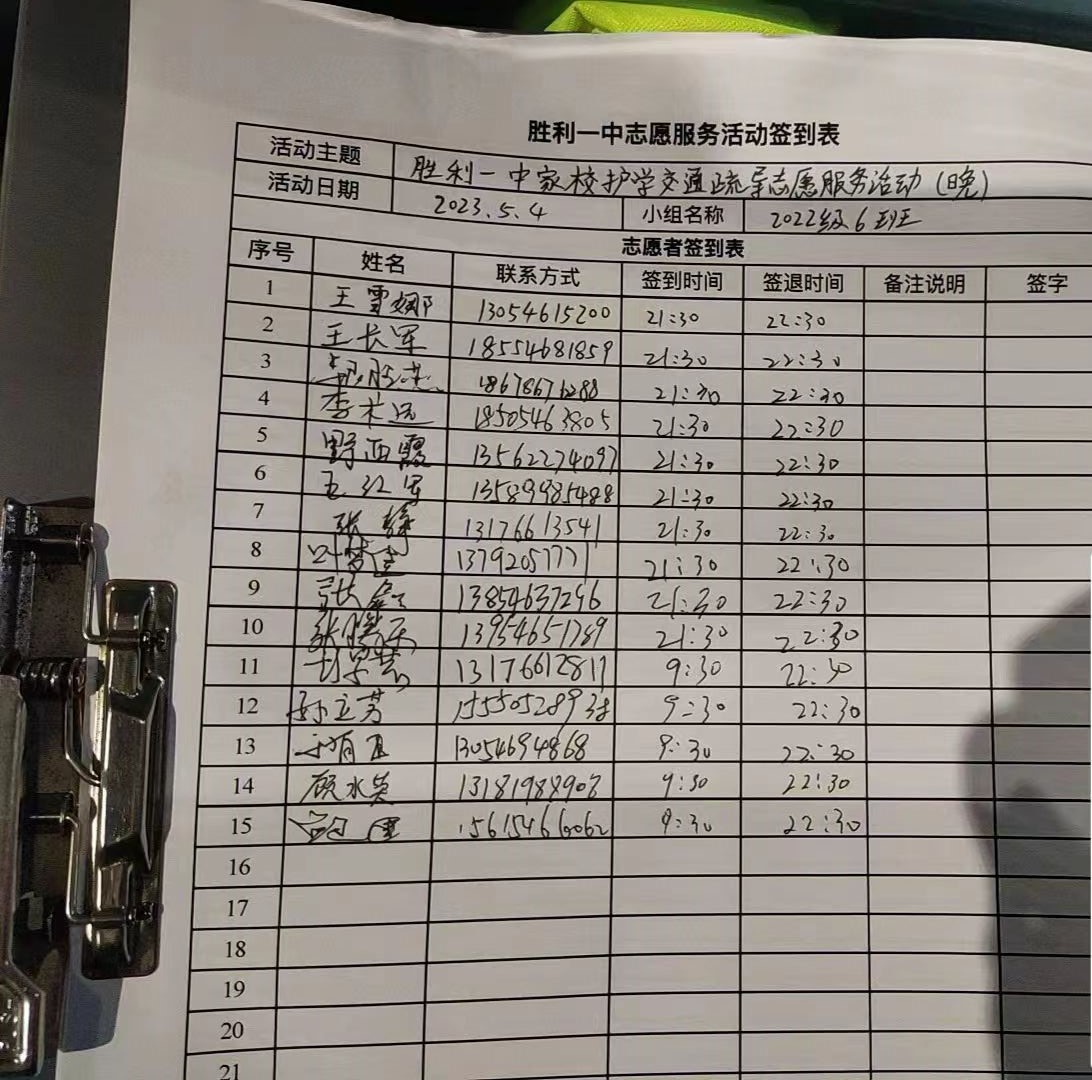 胜利一中志愿服务活动签到表
活动主题 胜利一中家校护学交通疏导志愿服务活动(晚)
活动日期 2023.5.4 小组名称 2022级6班
志愿者签到表
序号 姓名 联系方式 签到时间 签退时间 备注说明 签字
1 王雪娜 13054615200 21:30 22:30
2 王长军 18554681859 21:30 22:30
3 18678671288 21:30 22:30
4 李 18505463805 21:30 22:30
5 野西霞 13562274097 21:30 22:30
6 王红军 13589985488 21:30 22:30
7 张静 13176613541 21:30 22:30
8 叶梦 13792057771 21:30 22:30
9 张 13854637296 21:30 22:30
10 张 13954651789 21:30 22:30
11 13176612811 9:30 22:30
12 孙立芳 15550528938 9:30 22:30
13 13054694868 9:30 22:30
14 顾水英 13181988908 9:30 22:30
15 15615466062 9:30 22:30
16
17
18
19
20
21